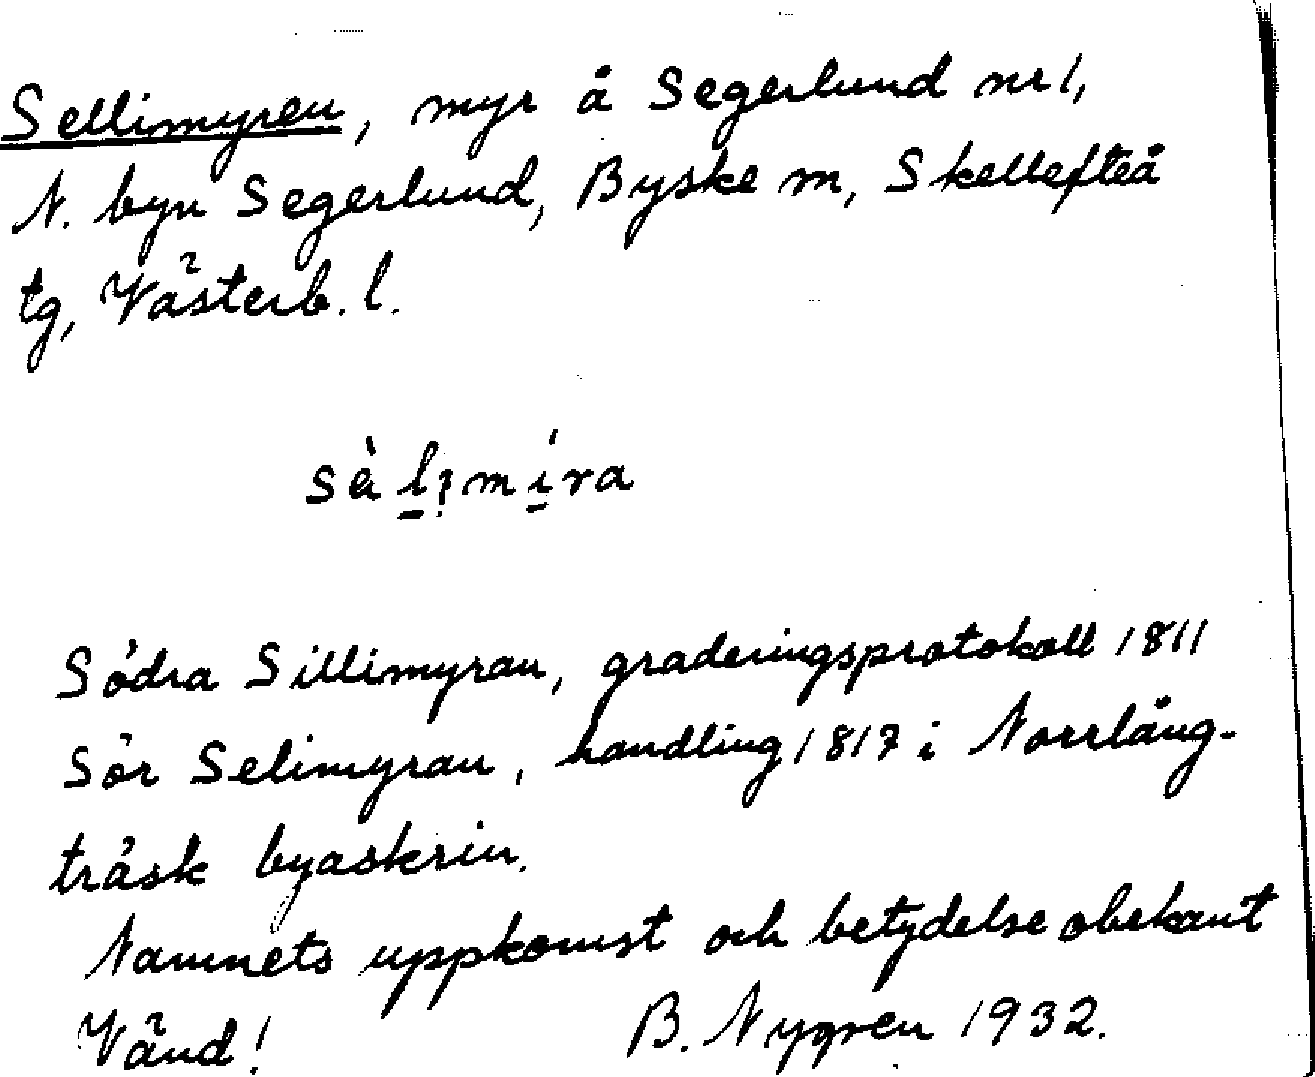 Sellimyren, myr å Segerlund nr 1,
N. byn Segerlund, Byske sn, Skellefteå
tg, Västerb. l.
sὰl̠ımí̠ra
Södra Sillimyran, graderingsprotokoll 1811
Sör Selimyran, handling 1817 i Norrlång-
träsk byaskrin.
Namnets uppkomst och betydelse obekant
Vänd! B. Nygren 1932.